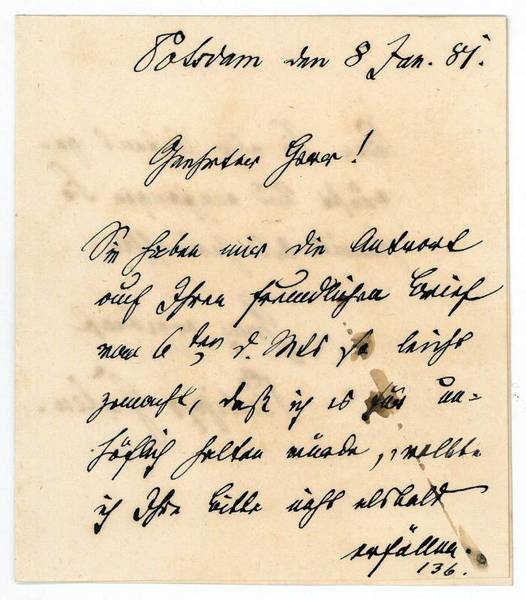 Potsdam den 8 Jan. 81.
Geehrter Herr!
Sie haben mir die Antwort
auf Ihren freundlichen Brief
vom 6ten d. Mts so leicht
gemacht, daß ich es für un-
höflich halten würde, wollte
ich Ihre Bitte nicht alsbald
erfüllen.
136.